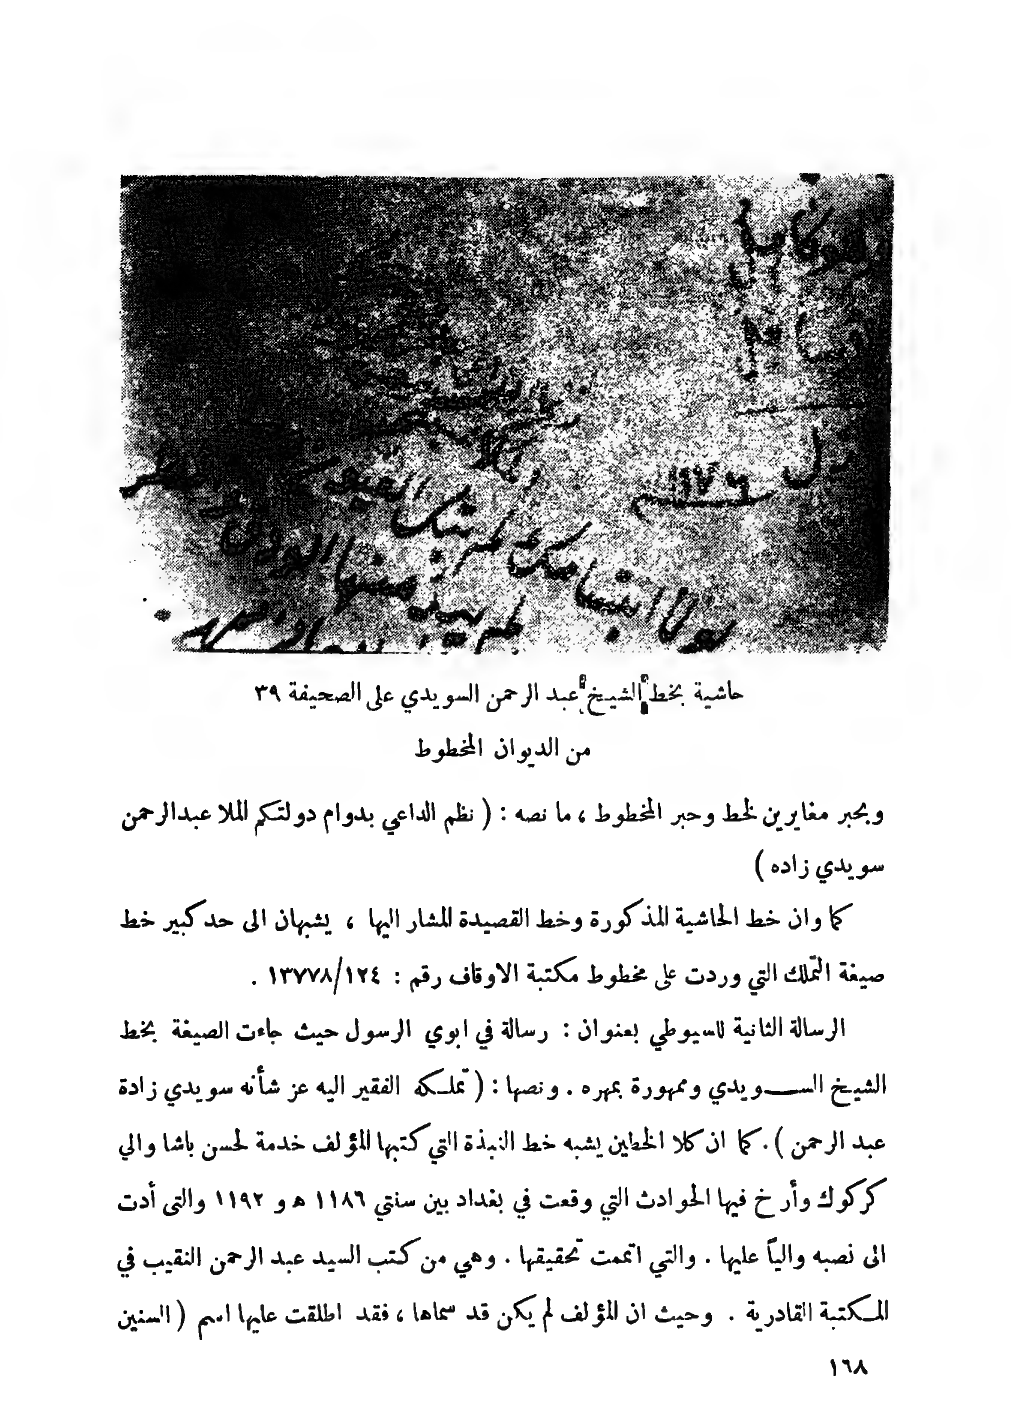 ١١٧٦
حاشية بخط الشيخ عبد الرحمن السويدي على الصحيفة ٣٩
من الديوان المخطوط
وبحبر مغايرين لخط وحبر المخطوط ، ما نصه : ( نظم الداعي بدوام دولتكم الملا عبدالرحمن
سويدي زاده )
كما وان خط الحاشية المذكورة وخط القصيدة المشار اليها ، يشبهان الى حد كبير خط
صيغة التملك التي وردت على مخطوط مكتبة الاوقاف رقم : ١٣٧٧٨/١٢٤ .
الرسالة الثانية للسيوطي بعنوان : رسالة في ابوي الرسول حيث جاءت الصيغة بخط
الشيخ الســـويدي وممهورة بمهره . ونصها : ( تملـكه الفقير اليه عز شأنه سويدي زادة
عبد الرحمن ) . كما ان كلا الخطين يشبه خط النبذة التي كتبها المؤلف خدمة لحسن باشا والي
كركوك وأرخ فيها الحوادث التي وقعت في بغداد بين سنتي ١١٨٦ ه و ١١٩٢ والتى أدت
الى نصبه والياً عليها . والتي اتممت تحقيقها . وهي من كتب السيد عبد الرحمن النقيب في
المـكتبة القادرية . وحيث ان المؤلف لم يكن قد سماها ، فقد اطلقت عليها اسم ( السنين
١٦٨